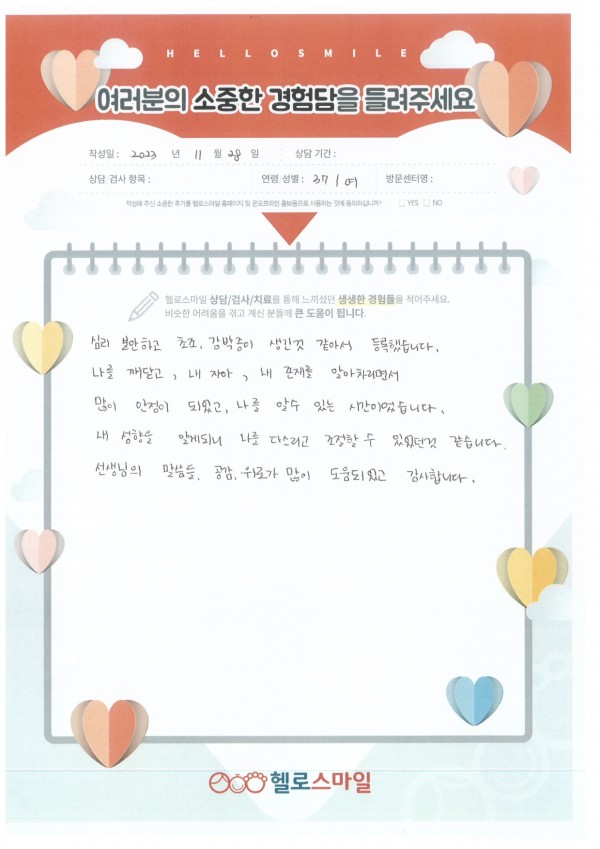 HELLOSMILE
여러분의 소중한 경험담을 들려주세요
작성일 : 2023 년 11 월 28 일 상담 기간 :
상담/검사 항목 : 연령/성별 : 37 / 여 방문센터명 :
작성해 주신 소중한 후기를 헬로스마일 홈페이지 및 온오프라인 홍보용으로 사용하는 것에 동의하십니까? YES NO
헬로스마일 상담/검사/치료를 통해 느끼셨던 생생한 경험들을 적어주세요.
비슷한 어려움을 겪고 계신 분들께 큰 도움이 됩니다.
심리 불안하고 초조, 강박증이 생긴것 같아서 등록했습니다.
나를 깨닫고, 내 자아, 내 존재를 알아차리면서
많이 안정이 되었고, 나를 알수 있는 시간이었습니다.
내 성향을 알게되니 나를 다스리고 조절할 수 있었던것 같습니다.
선생님의 말씀들, 공감, 위로가 많이 도움되었고 감사합니다.
헬로스마일